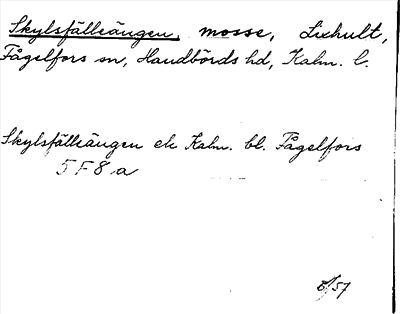 Skylsfällsängen, mosse, Lixhult,
Fågelfors sn, Handbörds hd, Kalm. l.
Skylsfällsängen ek Kalm. bl. Fågelfors
5 F 8 a
8/57